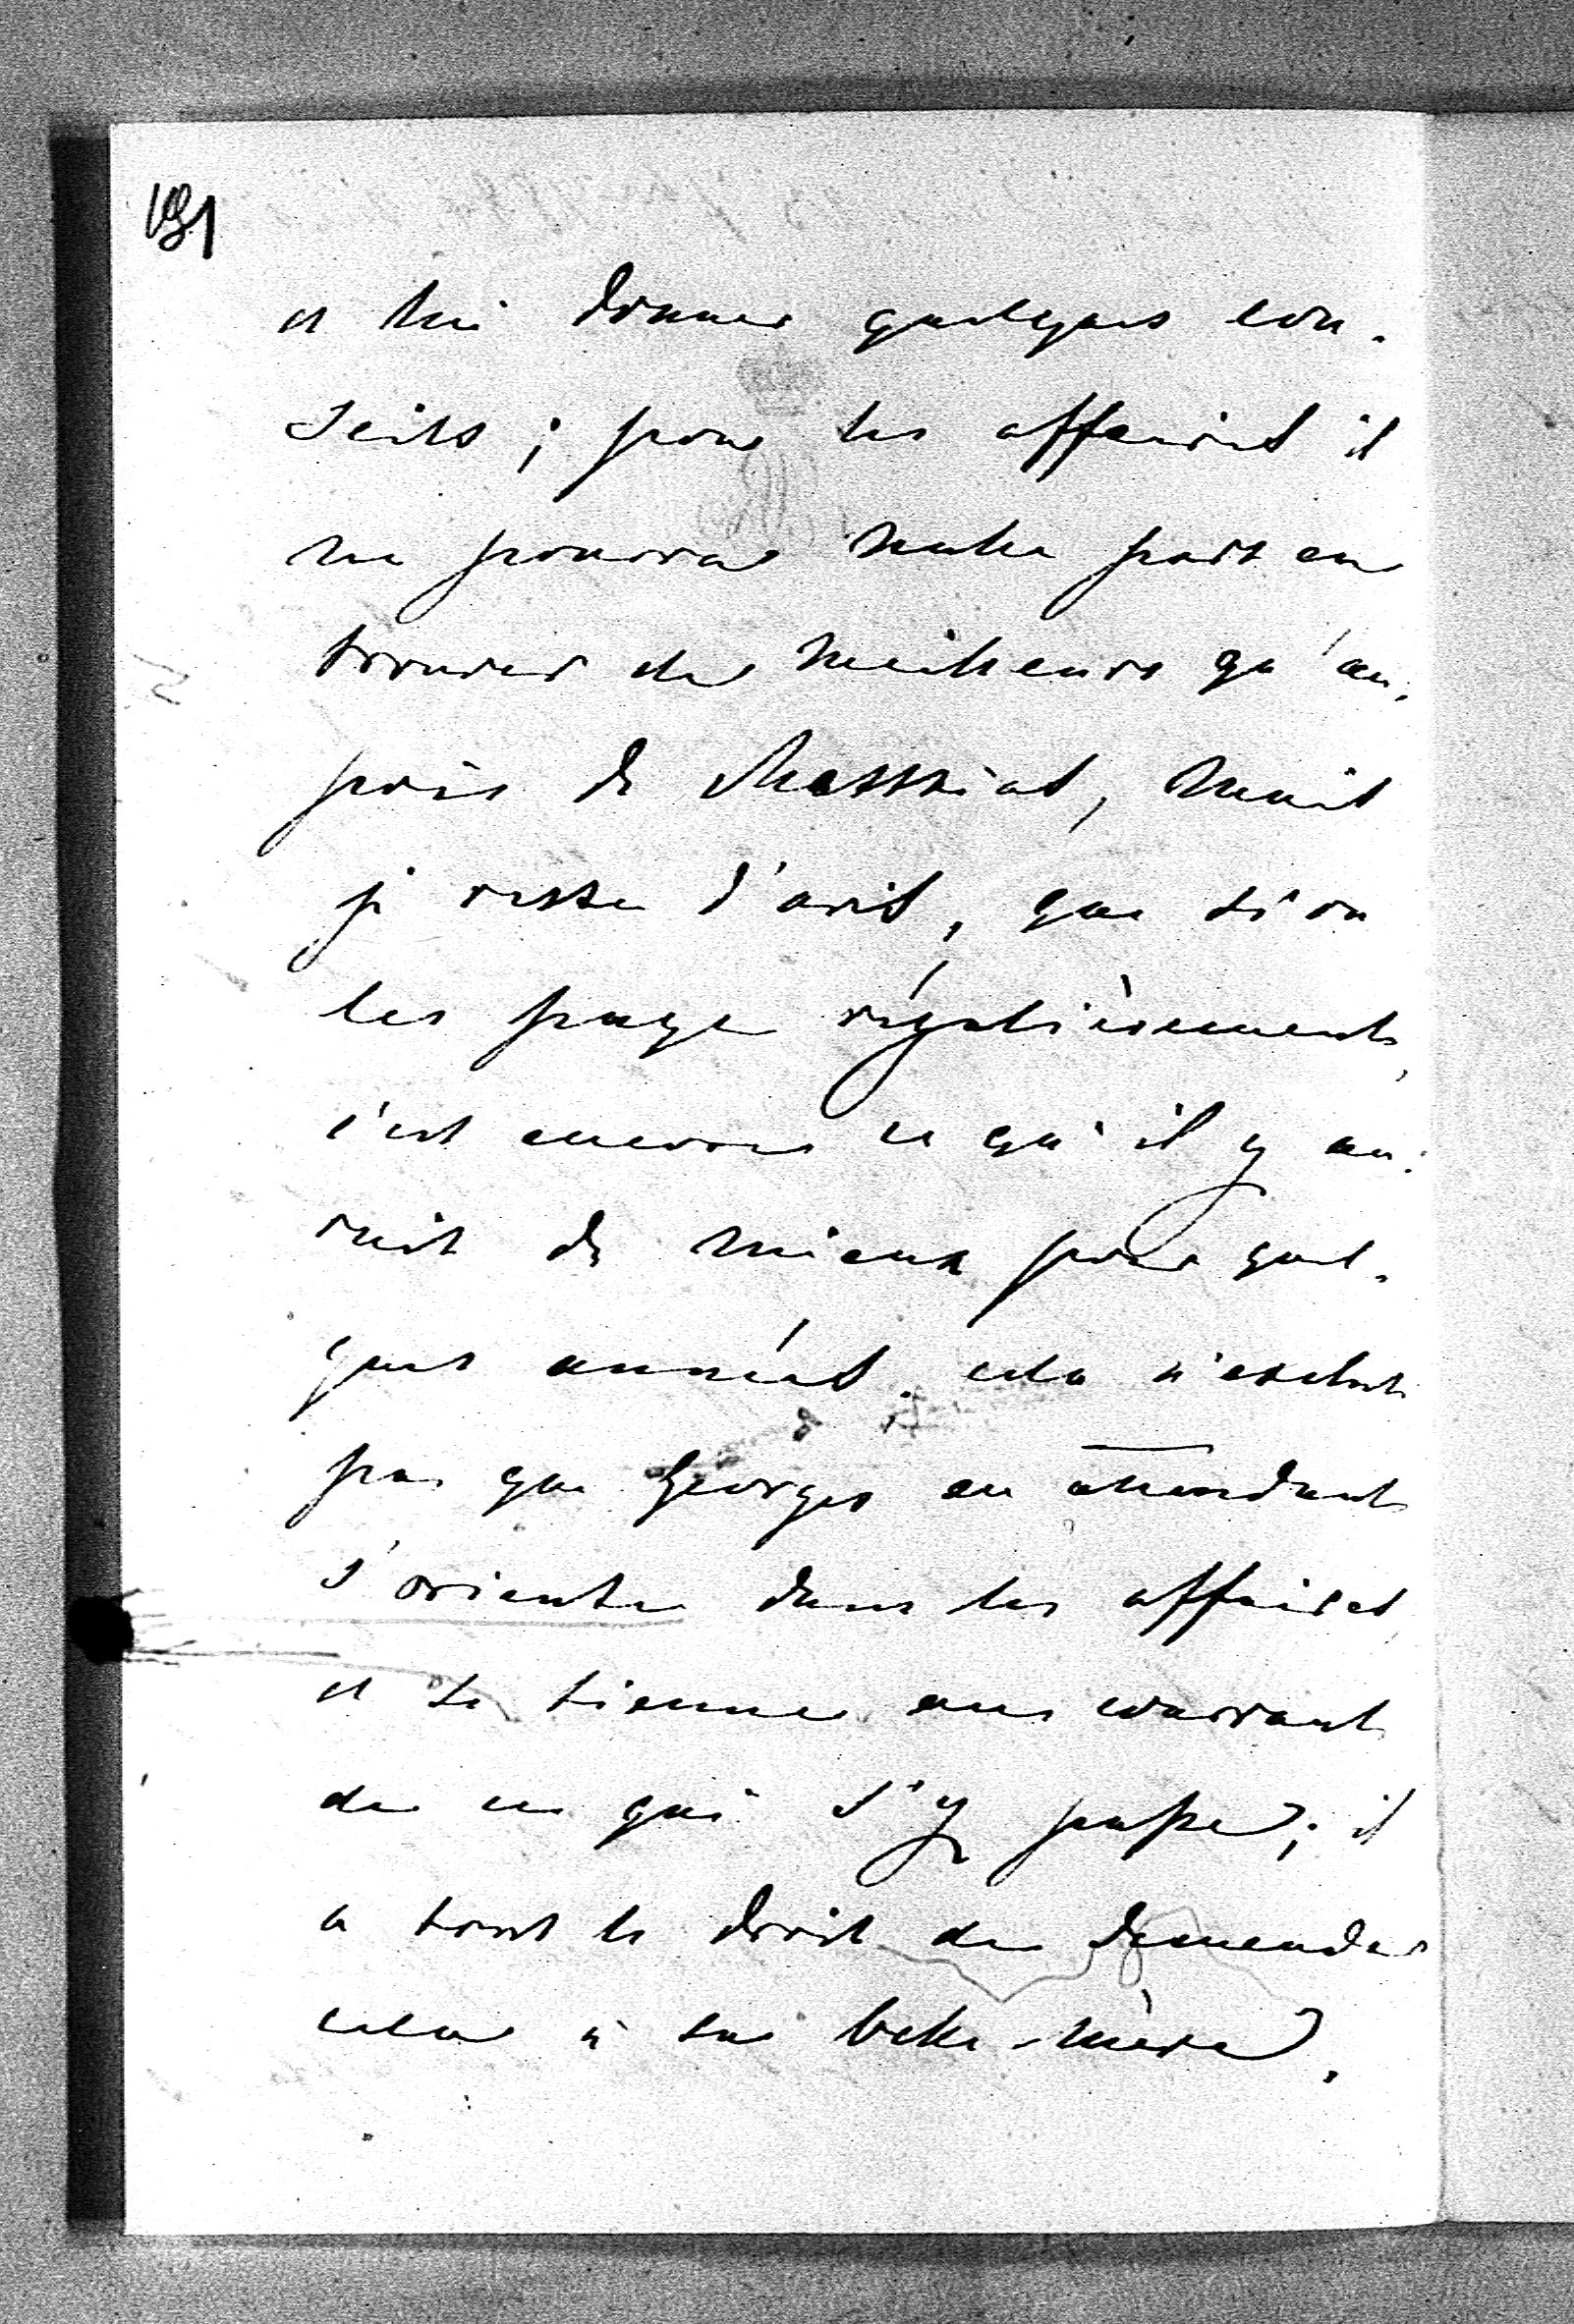 191
et lui donner quelques con-
seils ; pour les affaires il
ne pourra nulle part en
trouver de meilleurs qu'au-
près de , mais
je reste d'avis, que si on
les paye régulièrement,
c'est encore ce qu'il y au-
rait de mieux pour quel-
ques années. cela n'exclut
pas que Georges en attendant
s'oriente dans les affaires,
et se tienne au courant
de ce qui s'y passe ; il
a tout le droit de demander
cela à sa belle-mère.